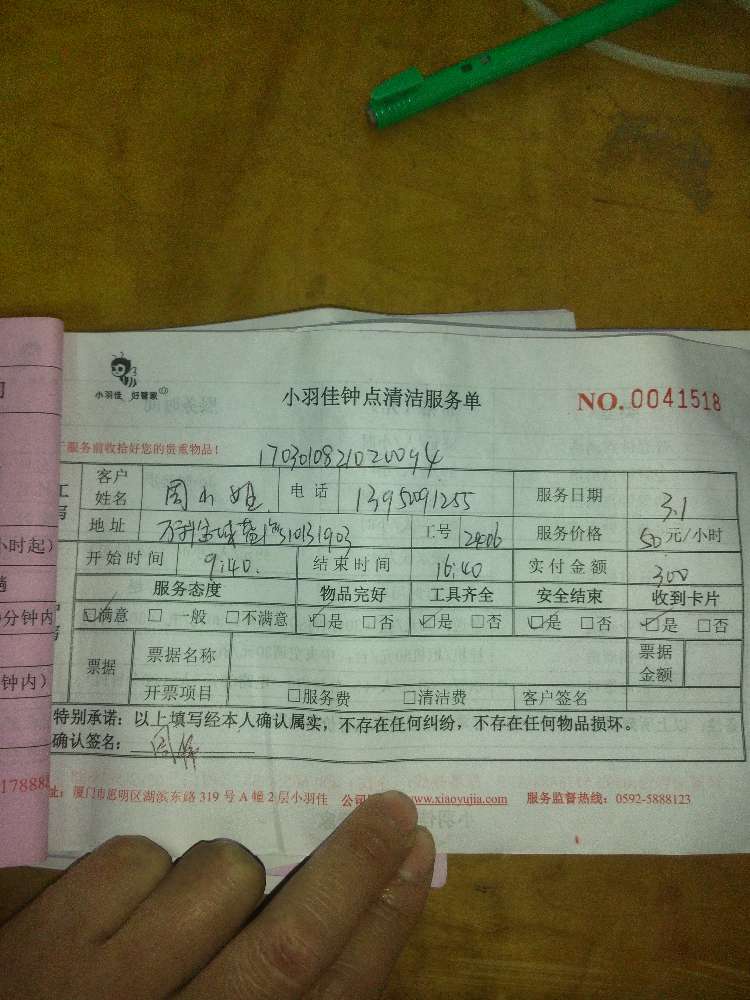 小羽佳 好管家
小羽佳钟点清洁服务单
NO. 0041518
服务前收拾好您的贵重物品！
客户姓名 周小姐 电话 13950091255 服务日期 3.1
地址 工号 2406 服务价格 50元/小时
开始时间 9:40. 结束时间 16:40 实付金额 300
服务态度 物品完好 工具齐全 安全结束 收到卡片
☑满意 □一般 □不满意 ☑是 □否 ☑是 □否 ☑是 □否 ☑是 □否
票据 票据名称 票据金额
开票项目 □服务费 □清洁费 客户签名
特别承诺：以上填写经本人确认属实，不存在任何纠纷，不存在任何物品损坏。
确认签名：
址：厦门市思明区湖滨东路 319 号 A 幢 2 层小羽佳 公司 www.xiaoyujia.com 服务监督热线：0592-5888123
小时起）
分钟内
钟内）
17888